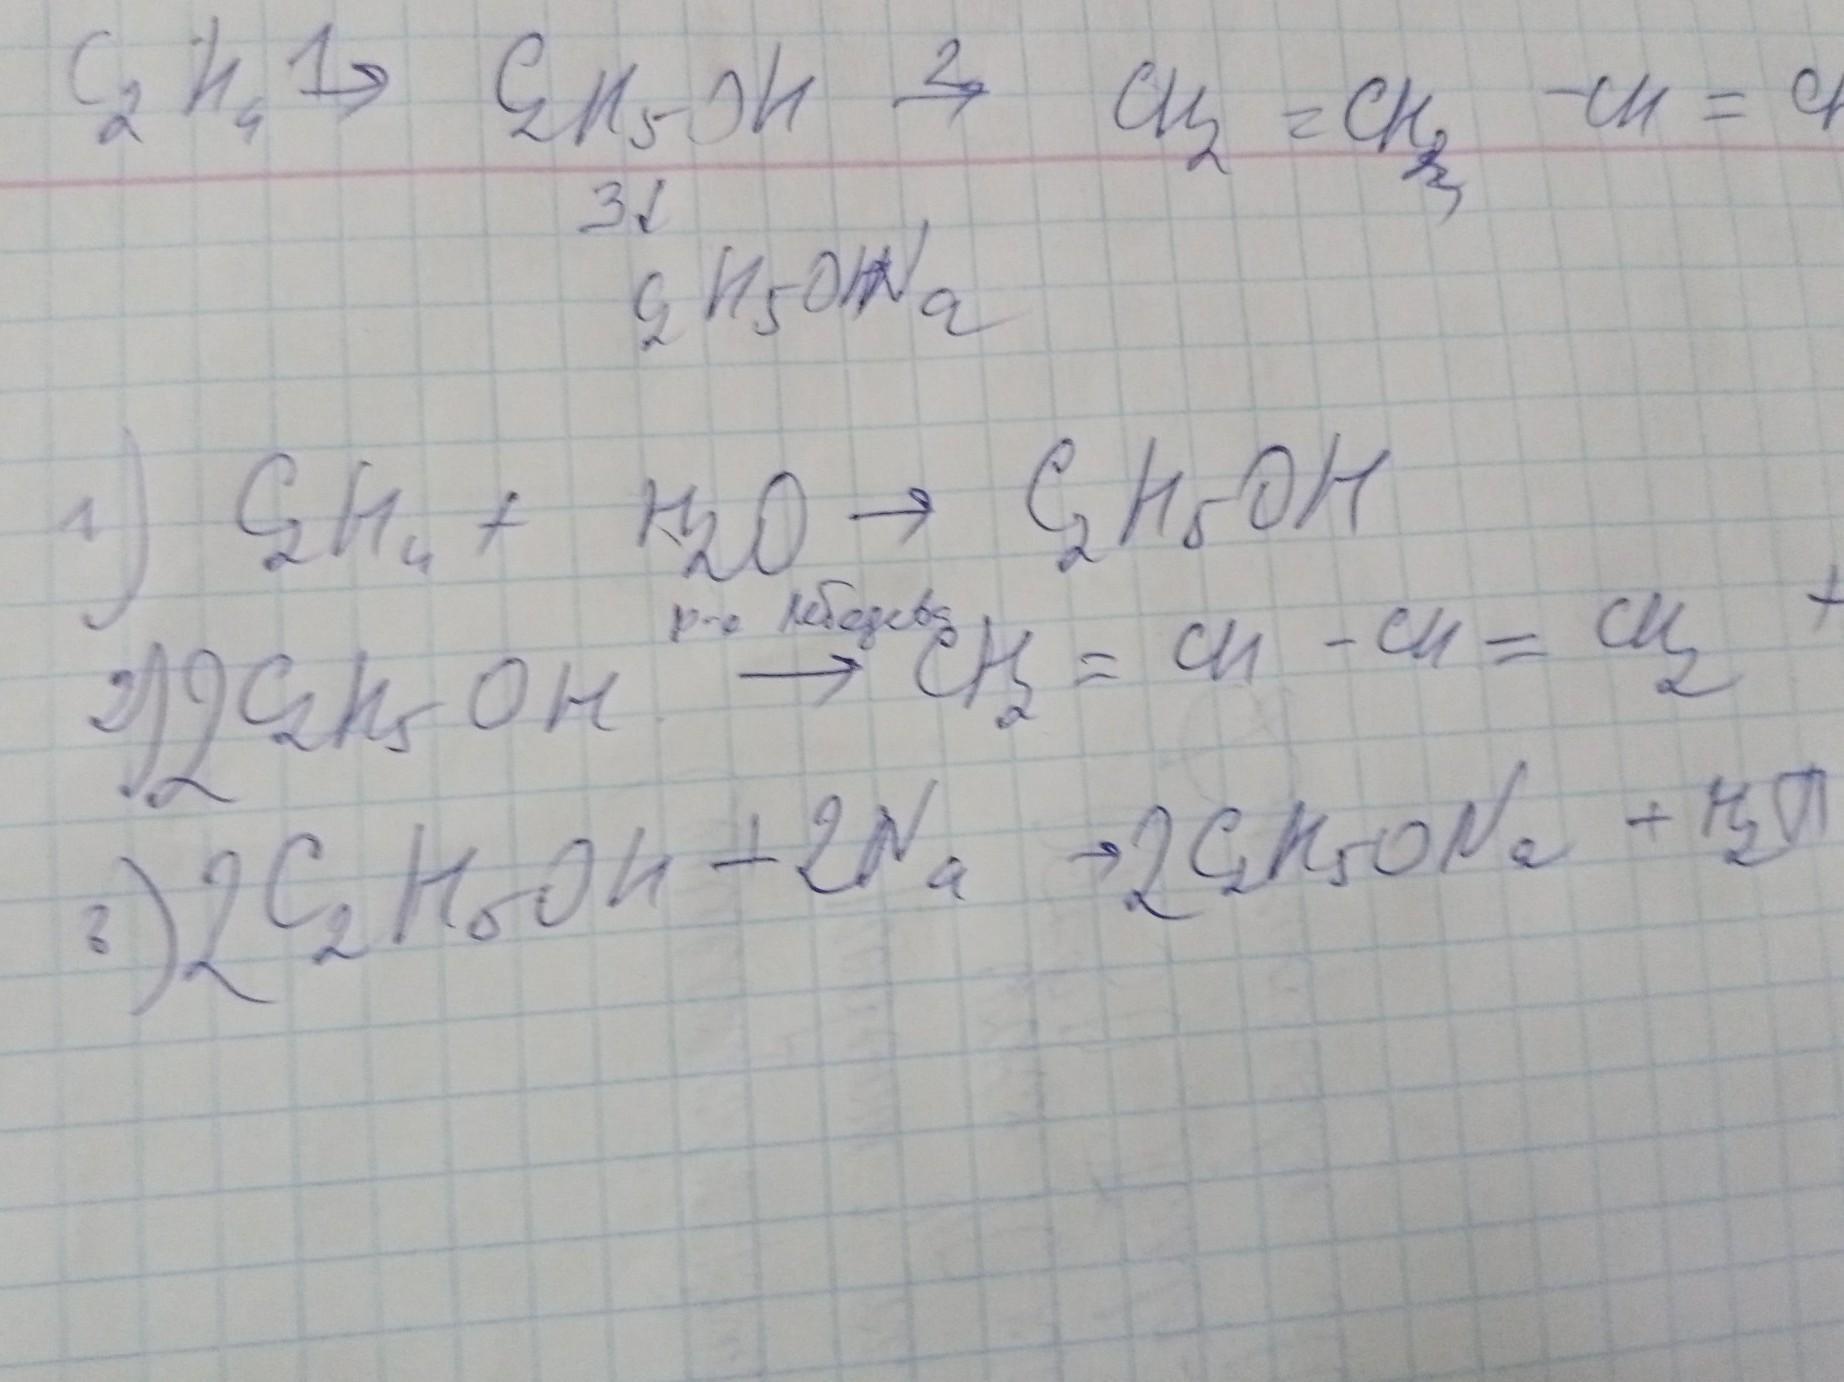 C₂H₄ 1→ C₂H₅OH 2→ CH₂ = CH₂ -CH = CH
3↓
C₂H₅OHNa
1) C₂H₄ + H₂O → C₂H₅OH
р-е Лебедева
2) 2C₂H₅OH → CH₂ = CH - CH = CH₂ +
3) 2C₂H₅OH + 2Na → 2C₂H₅ONa + H₂↑